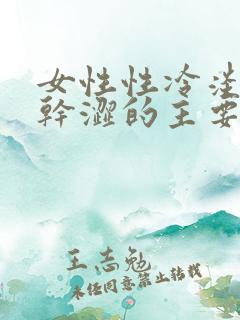 女性性冷淡
幹澀的主要
王志勉
未经同意禁止转载